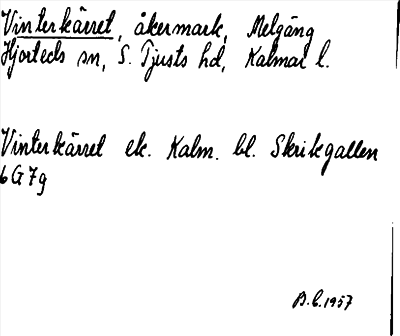 Vinterkärret, åkermark, Melgäng
Hjorteds sn, S. Tjusts hd, Kalmar l.
Vinterkärret ek. Kalm. bl. Skrikgallen
6G7g
B.L. 1957